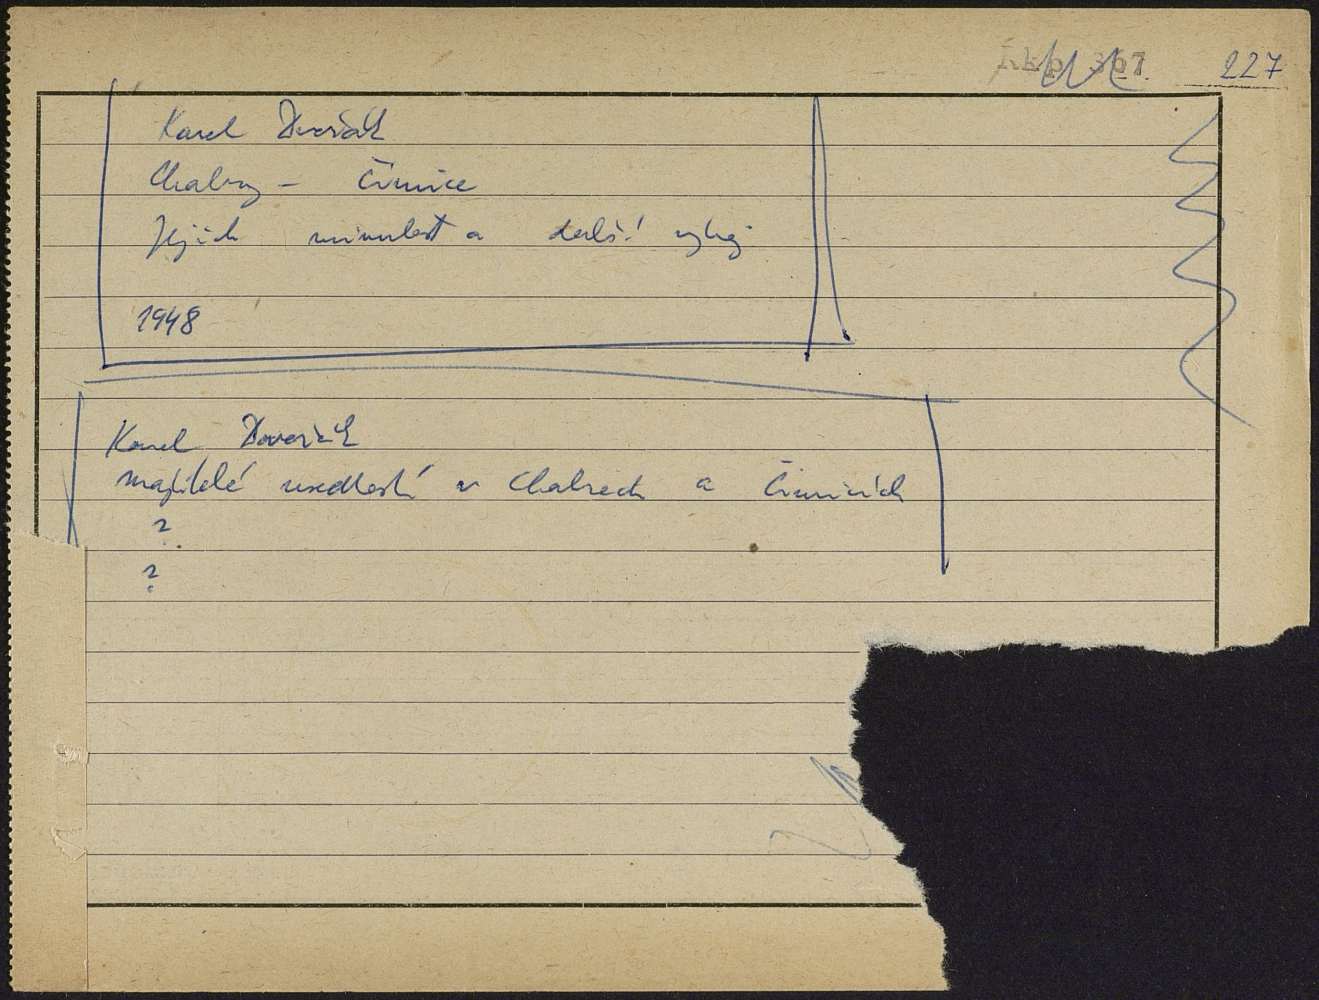 Rkp 367 227
Karel Dvořák
Chabry - Čimice
Jejich minulost a další vývoj
1948
Karel Dvořák
majitelé usedlostí v Chabrech a Čimicích
?
?